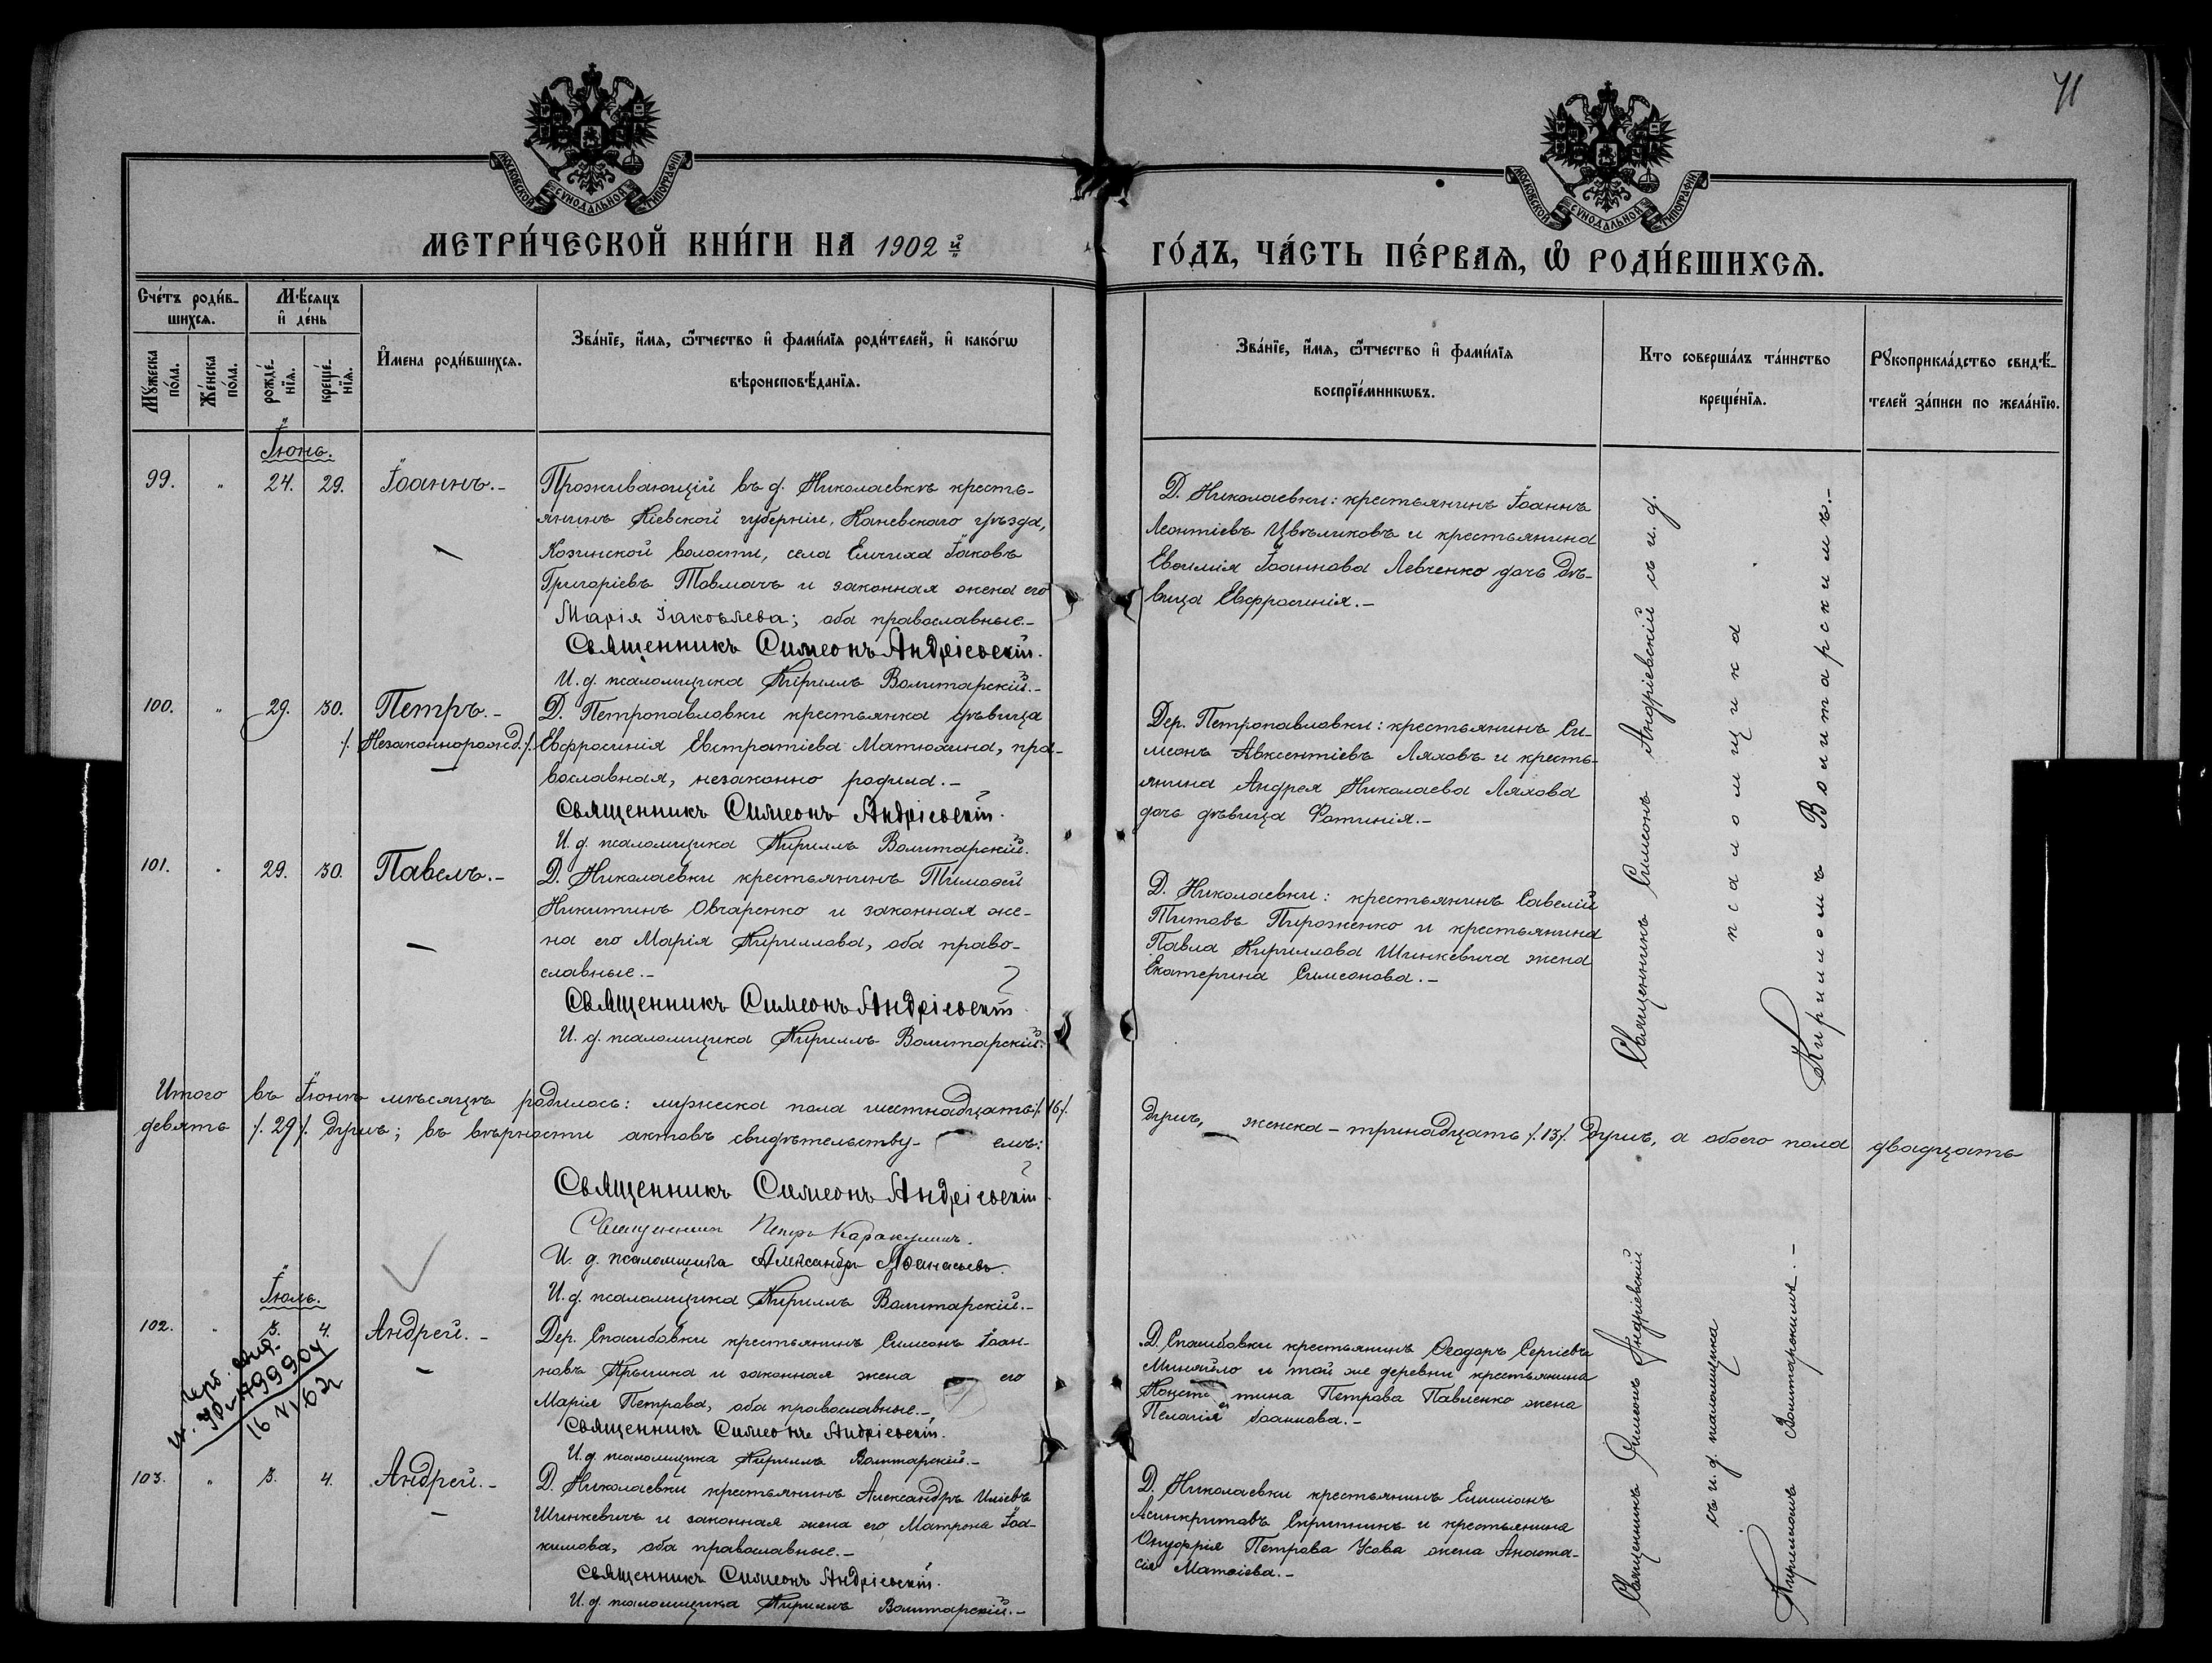 41
МОСКОВСКОЙ СѴНОДАЛЬНОЙ ТИПОГРАФІИ
МОСКОВСКОЙ СѴНОДАЛЬНОЙ ТИПОГРАФІИ
МЕТРИ́ЧЕСКОЙ КНИ́ГИ НА 1902 й
ГО́ДЪ, ЧА́СТЬ ПЕ́РВАѦ, Ѡ РОДИ́ВШИХСѦ.
Сче́тъ роди́в-
шихсѧ.
Мꙋ́жеска по́ла.
Же́нска по́ла.
Мѣ́сѧцъ
и҆ де́нь
рожде́-
нїѧ.
креще́-
нїѧ.
И҆мена роди́вшихсѧ.
Зва́нїе, и҆́мѧ, ѻ҆́тчество и҆ фами́лїѧ роди́телей, и҆ како́гѡ
вѣроисповѣ́данїѧ.
Зва́нїе, и҆́мѧ, ѻ҆́тчество и҆ фами́лїѧ
воспрїе́мникѡвъ.
Кто соверша́лъ та́инство
креще́нїѧ.
Рꙋкоприкла́дство свидѣ́-
телей за́писи по жела́нїю.
Іюнь.
99. " 24. 29. Іоаннъ.-
Проживающій въ д. Николаевкѣ кресть-
янинъ Кіевской губерніи, Каневскаго уѣзда,
Козинской волости, села Емчиха Іаковъ
Григоріевъ Товмачъ и законная жена его
Марія Іаковлева; оба православные.-
Священникъ Симеонъ Андріевскій.
И. д. псаломщика Кириллъ Волитарскій.-
Д. Николаевки: крестьянинъ Іоаннъ
Леонтіевъ Цвѣликовъ и крестьянина
Евѳимія Іоаннова Левченко дочь дѣ-
вица Евфросинія.-
100. " 29. 30. Петръ.-
/. Незаконнорожд. /.
Д. Петропавловки крестьянка дѣвица
Евфросинія Евстратіева Матюхина, пра-
вославная, незаконно родила.-
Священникъ Симеонъ Андріевскій.
И. д. псаломщика Кириллъ Волитарскій.
Дер. Петропавловки: крестьянинъ Си-
меонъ Авксентіевъ Ляховъ и кресть-
янина Андрея Николаева Ляхова
дочь дѣвица Фотинія.-
101. " 29. 30. Павелъ.-
Д. Николаевки крестьянинъ Тимоѳей
Никитинъ Овчаренко и законная же-
на его Марія Кириллова, оба право-
славные.-
Священникъ Симеонъ Андріевскій
И. д. псаломщика Кириллъ Волитарскій.
Д. Николаевки: крестьянинъ Савелій
Титовъ Пироженко и крестьянина
Павла Кириллова Шинкевича жена
Екатерина Симеонова.-
Священникъ Симеонъ Андріевскій съ и. д.
псаломщика
Кирилломъ Волитарскимъ.-
Итого въ Іюнѣ мѣсяцѣ родилось: мужеска пола шестнадцать /. 16 /. душъ, женска - тринадцать /. 13 /. душъ, а обоего пола двадцать
девять /. 29 /. душъ; въ вѣрности актовъ свидѣтельству- емъ:
Священникъ Симеонъ Андріевскій.
Священникъ Петръ Каракулинъ.
И. д. псаломщика Александръ Аѳанасьевъ.
И. д. псаломщика Кириллъ Волитарскій.-
Іюль.
102. " 3. 4. Андрей.-
16 VI 62
Дер. Спашбовки крестьянинъ Симеонъ Іоан-
новъ Крышка и законная жена его
Марія Петрова, оба православные.-
Священникъ Симеонъ Андріевскій.
И. д. псаломщика Кириллъ Волитарскій.-
Д. Спашбовки крестьянинъ Ѳеодоръ Сергіевъ
Миняйло и той же деревни крестьянина
Констан тина Петрова Павленко жена
Пелагія Іоаннова.-
103. " 3. 4. Андрей.-
Д. Николаевки крестьянинъ Александръ Иліевъ
Шинкевичъ и законная жена его Матрона Іоа-
кимова, оба православные.-
Священникъ Симеонъ Андріевскій.
И. д. псаломщика Кириллъ Волитарскій.-
Д. Николаевки крестьянинъ Емиліанъ
Асинкритовъ Скрипникъ и крестьянина
Онуфрія Петрова Усова жена Анаста-
сія Матѳіева.-
Священникъ Симеонъ Андріевскій
съ и. д. псаломщика
Кирилломъ Волитарскимъ.-